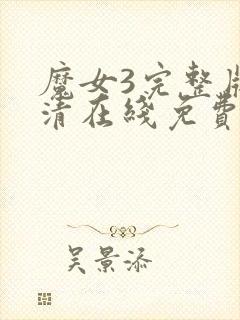 魔女3完整版
清在线免費
吴景添